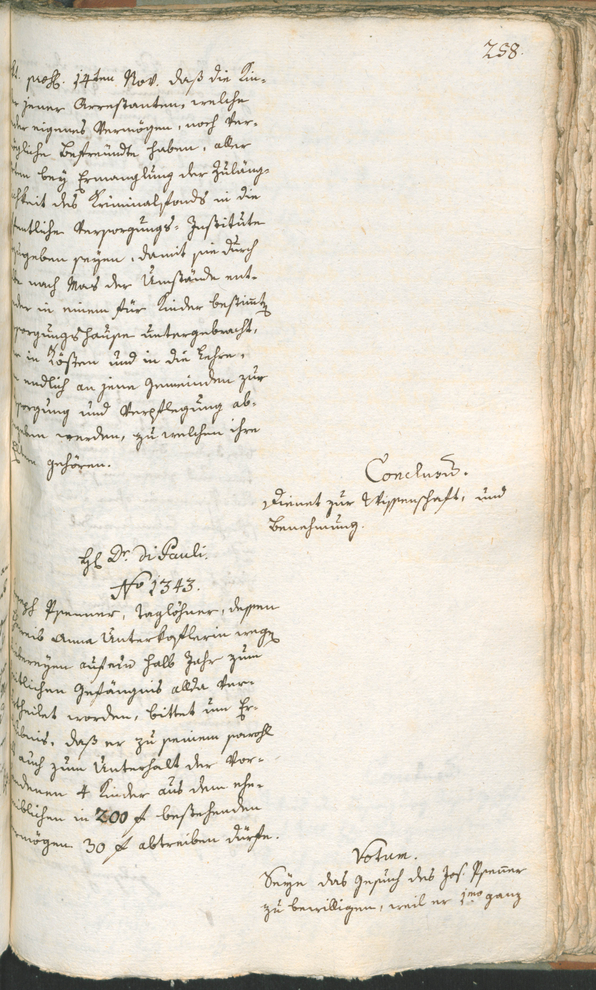 258.
praes. 14ten Nov. daß die Kin-
jener Arrestanten, welche
der eigenes Vermögen, noch Ver-
mögliche Befreundte haben, aller
bey Ermanglung der Zuläng-
lichkeit des Kriminalfonds in die
öffentliche Versorgungs-Institute
geben seyen, damit sie durch
nach Mas der Umstände ent-
der in einem für Kinder bestimten
sorgungshause untergebracht,
in Kösten und in die Lehre,
endlich an jene Gemeinden zur
sorgung und Verpflegung ab-
geben werden, zu welchen ihre
gehören.
Conclusum.
Dienet zur Wissenschaft, und
Benehmung.
H Dr. Di Pauli.
No 1343.
Joseph Psenner, Taglöhner, dessen
Weib Anna Unterkoflerin wegen
auf ein halb Jahr zum
Gefängnis allda ver-
theilet worden, bittet um Er-
laubnis, daß er zu seinem sowohl
auch zum Unterhalt der vor-
handenen 4 Kinder aus dem ehe-
weiblichen in 200 f bestehenden
Vermögen 30 f abtreiben dürfe.
Votum.
Seye das Gesuch des Jos. Psenner
zu bewilligen, weil er 1mo ganz